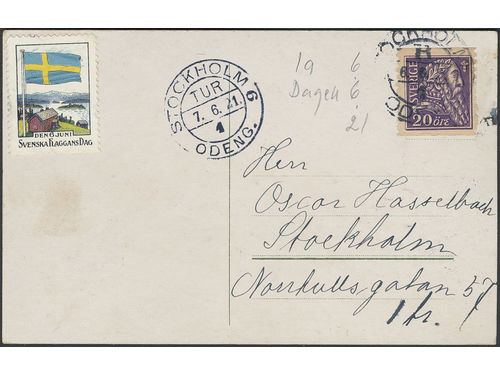 DEN 6 JUNI
SVENSKA FLAGGANS DAG
STOCKHOLM 6
TUR
7. 6. 21.
1
ODENG.
19 6
Dagen 6
21
SVERIGE
20 ÖRE
Herr
Oscar Hasselbach
Stockholm
Norrtullsgatan 57
1 tr.